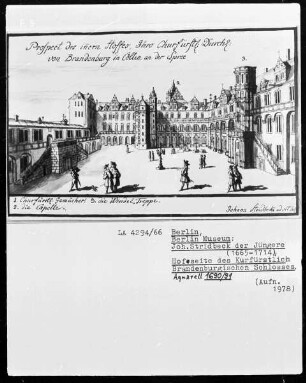 Prospect des inern Hoffes Ihro Churfürstl. Durchl.
von Brandenburg in Cölln an der Spree
3.
1. Churfürstl. Gemächer. 3. die Wendel Treppe.
2. die Capelle.
Johann Stridbeck
LA 4294/66
Berlin,
Berlin Museum:
Joh.Stridbeck der Jüngere
(1665-1714)
Hofseite des Kurfürstlich
Brandenburgischen Schlosses
Aquarell 1690/91
(Aufn.
1978)